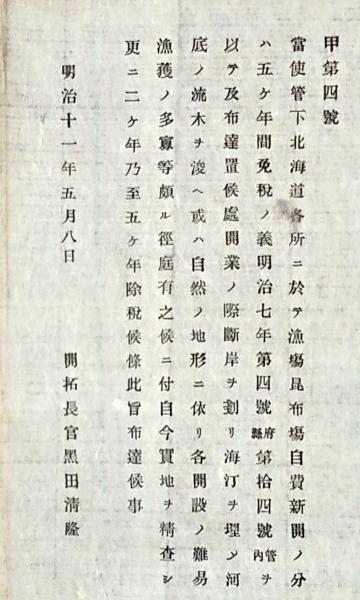 甲第四號
當使管下北海道各所ニ於テ漁塲昆布塲自費新開ノ分
ハ五ケ年間免稅ノ義明治七年第四號府縣第拾四號管內ヲ
以テ及布達置候處開業ノ際斷岸ヲ剗リ海汀ヲ埋メ河
底ノ流木ヲ浚ヘ或ハ自然ノ地形ニ依リ各開設ノ難易
漁獲ノ多寡等頗ル徑庭有之候ニ付自今實地ヲ精查シ
更ニ二ケ年乃至五ケ年除稅候條此旨布達候事
明治十一年五月八日
開拓長官黑田清隆